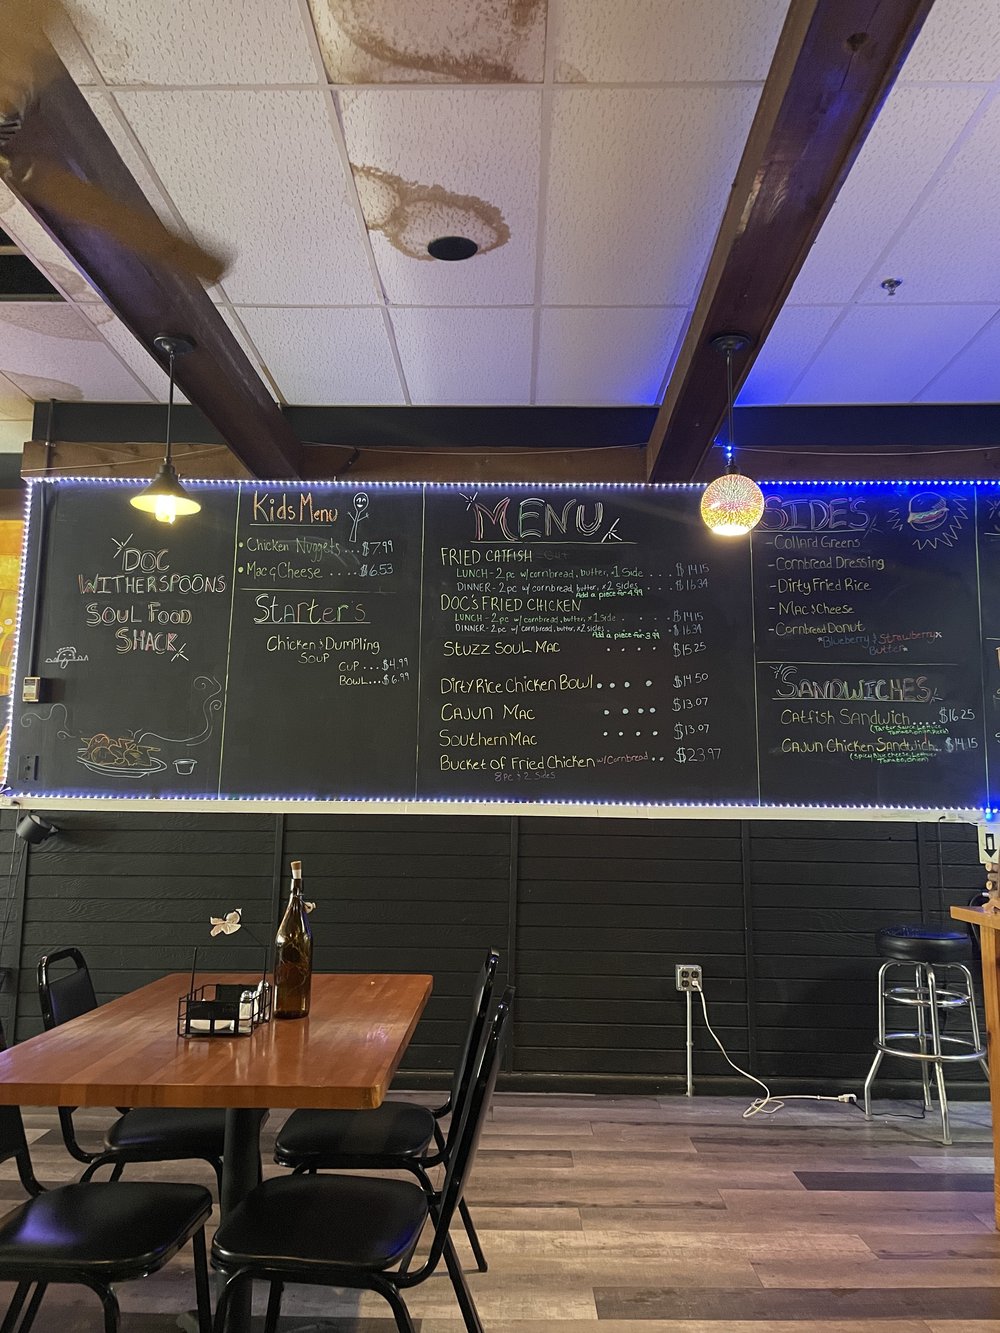 DOC
WITHERSPOONS
SOUL FOOD
SHACK
Kids Menu
• Chicken Nuggets ... $7.99
• Mac & Cheese ..... $6.53
Starter's
Chicken & Dumpling
Soup
CUP ... $4.99
BOWL... $6.99
MENU
FRIED CATFISH
LUNCH - 2 pc w/ cornbread, butter, x1 Side .... $14.15
DINNER - 2 pc w/ cornbread, butter, x2 sides ..... $16.34
Add a piece for 4.99
DOC'S FRIED CHICKEN
LUNCH - 2 pc w/ cornbread, butter, x1 side ..... $14.15
DINNER - 2 pc w/ cornbread, butter, x2 sides ..... $16.34
Add a piece for 3.99
STUZZ SOUL MAC .... $15.25
DIRTY RICE CHICKEN BOWL .... $14.50
CAJUN MAC .... $13.07
SOUTHERN MAC .... $13.07
BUCKET OF FRIED CHICKEN w/ CORNBREAD .. $23.97
8 pc & 2 Sides
SIDE'S
- Collard Greens
- Cornbread Dressing
- Dirty Fried Rice
- Mac & Cheese
- Cornbread Donut
*Blueberry & Strawberry*
Butter*
SANDWICHES
CATFISH SANDWICH .... $16.25
(Tartar Sauce, Lettuce
Tomato, Onion, Pickle)
CAJUN CHICKEN SANDWICH .. $14.15
(Spicy Blue Cheese, Lettuce
Tomato, Onion)